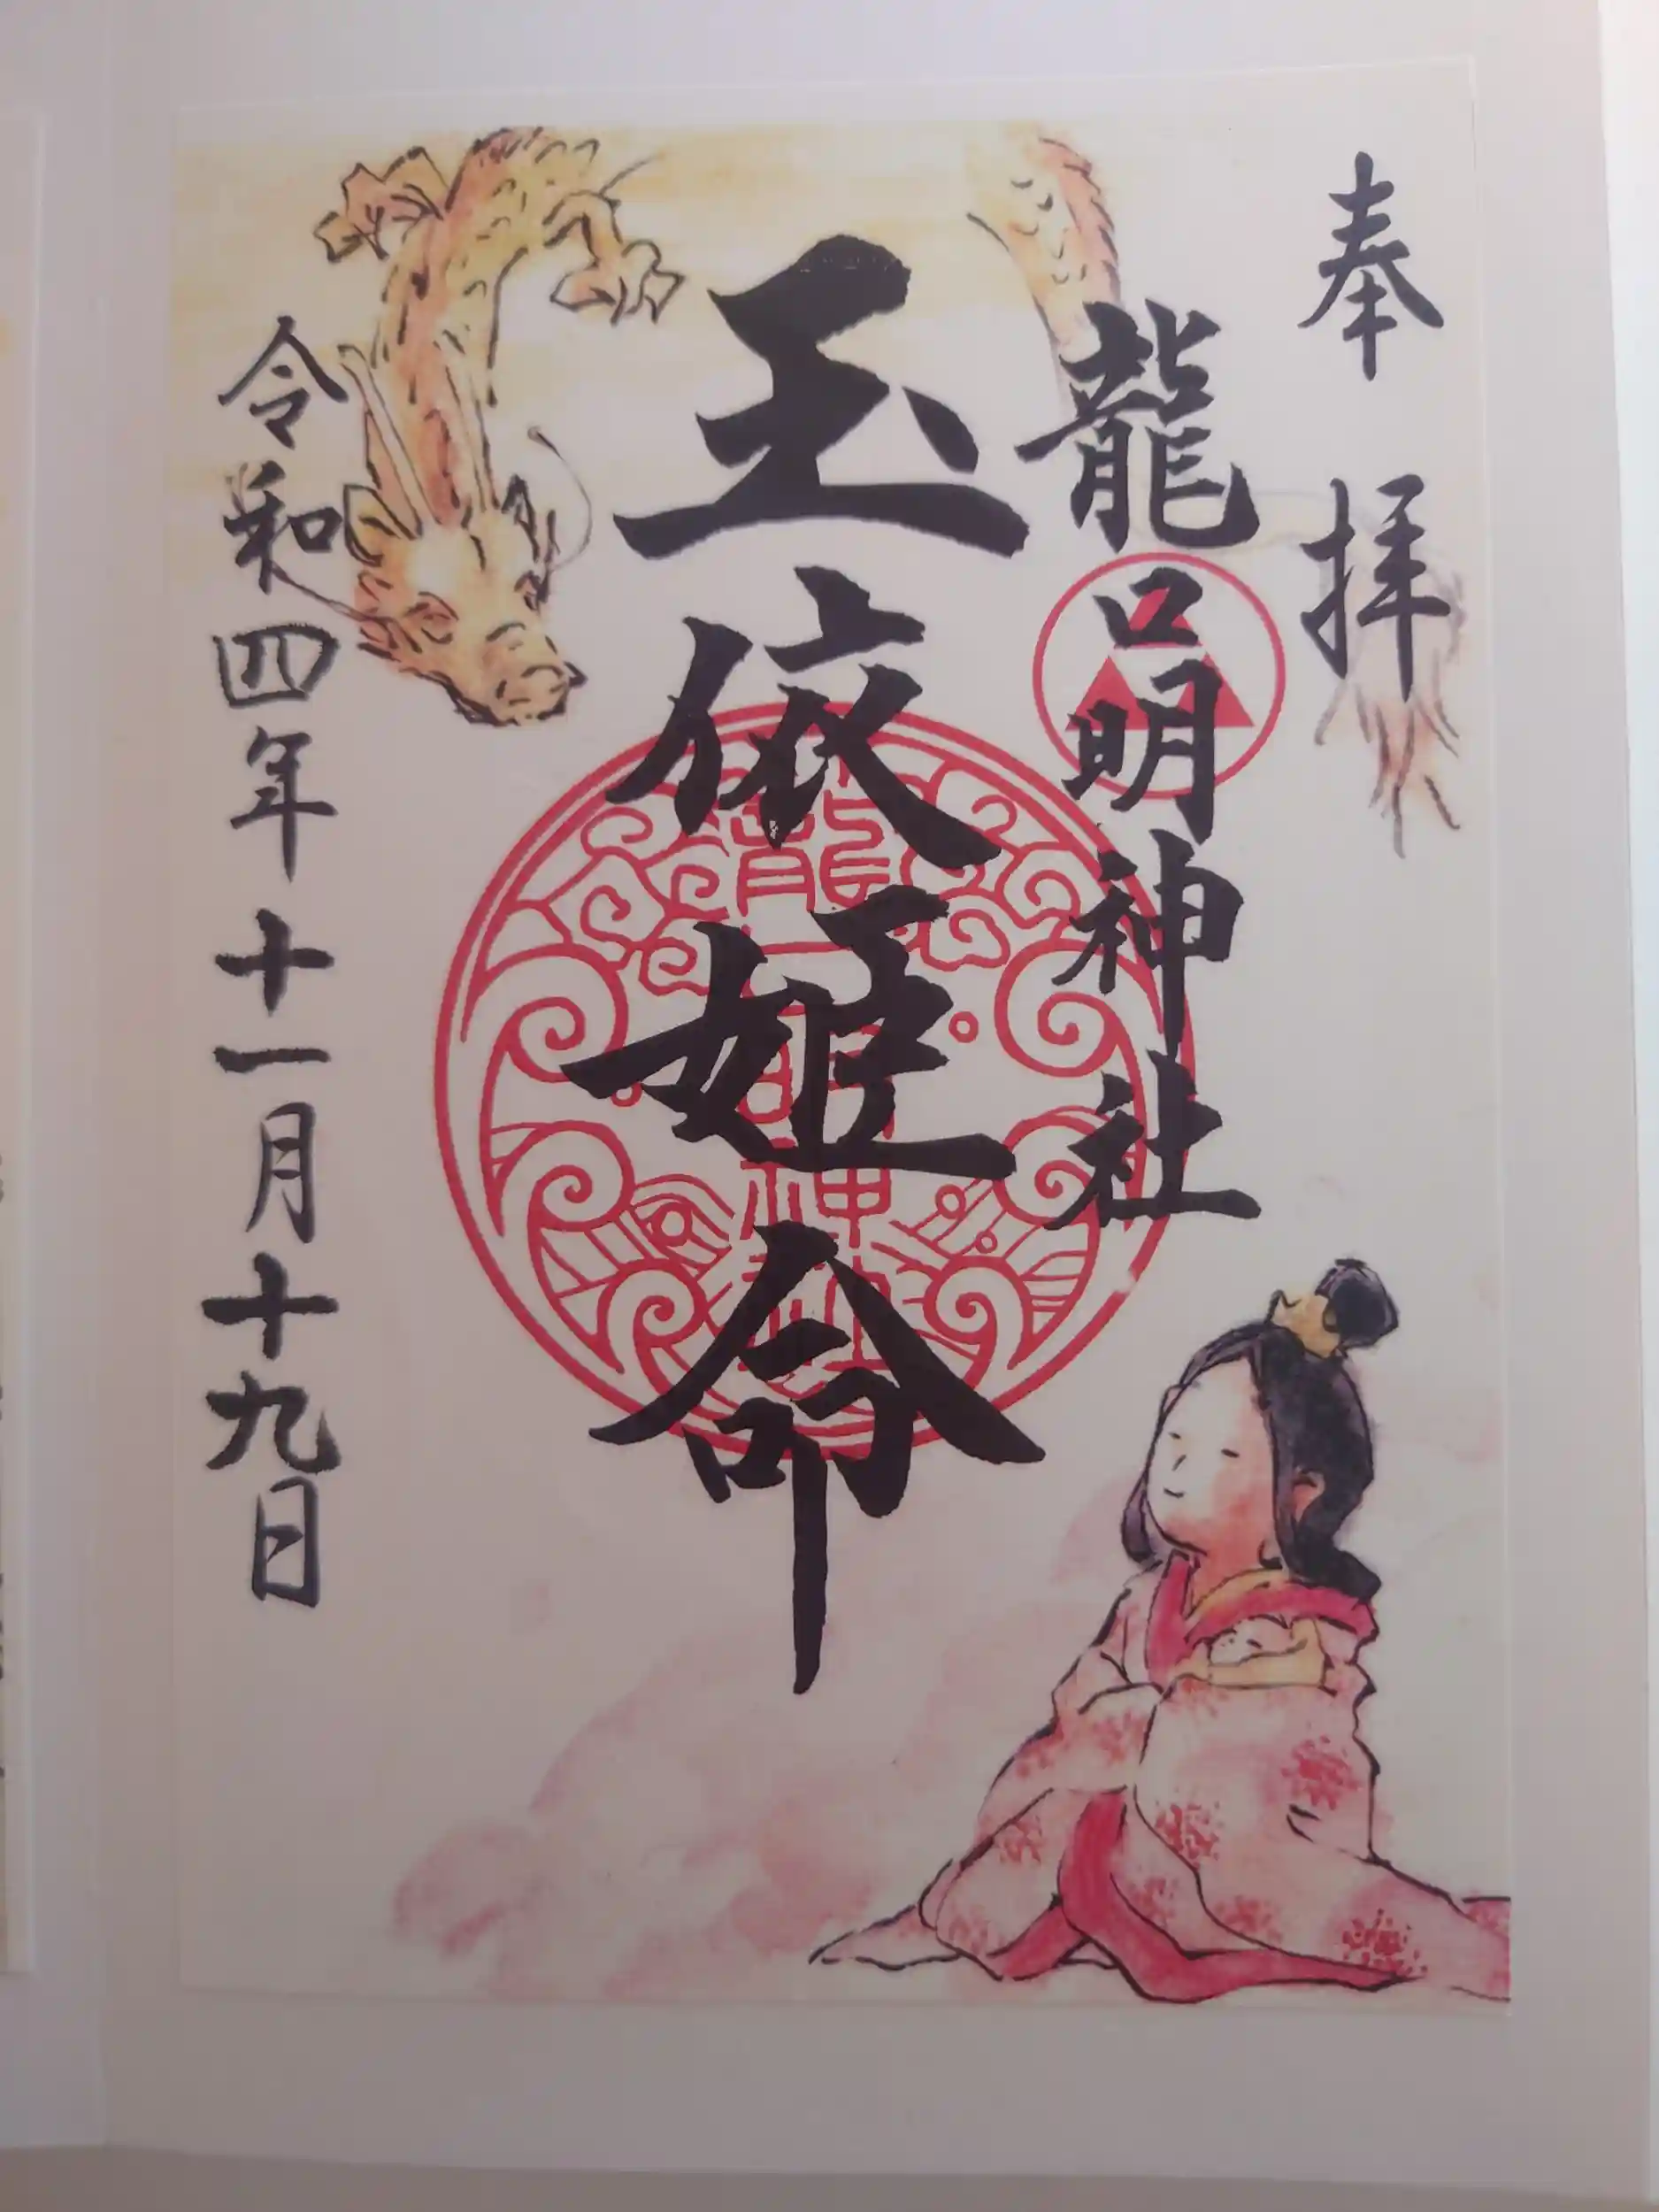 奉拝
龍口明神社
玉依姫命
龍口明神社
令和四年十一月十九日